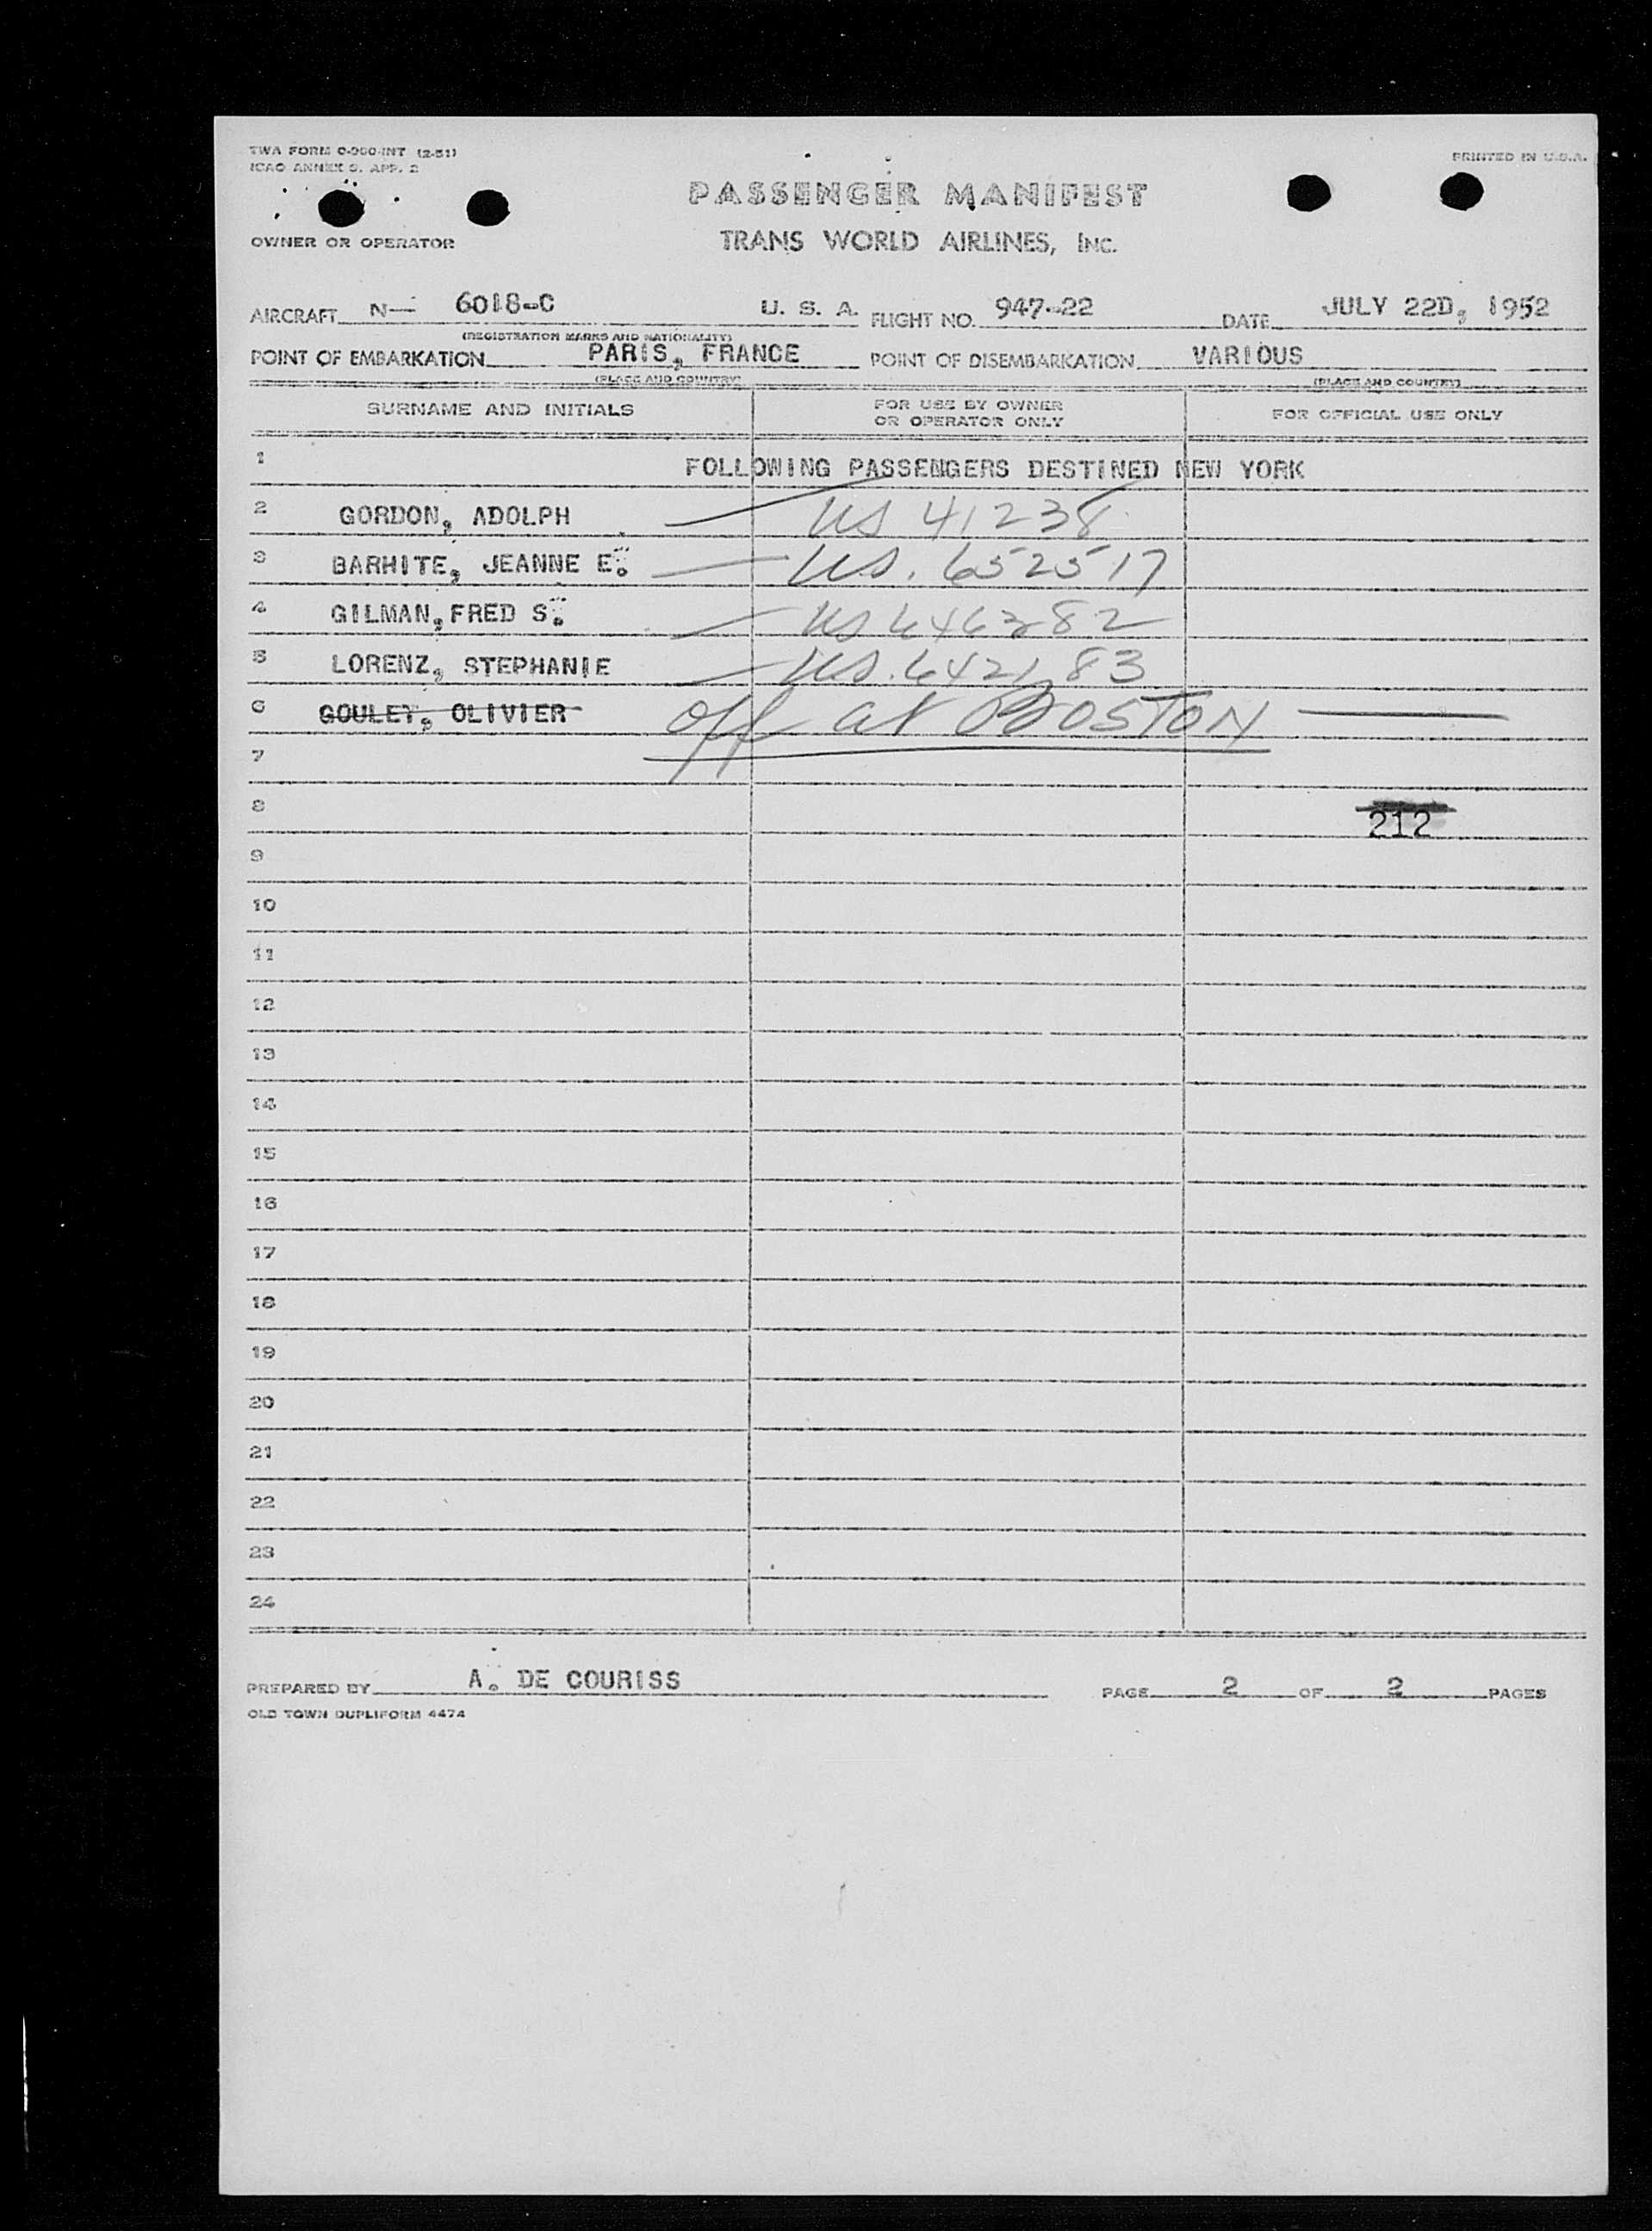 TWA FORM C-900-INT (2-51)
ICAO ANNEX 9, APP. 2
PRINTED IN U.S.A.
PASSENGER MANIFEST
OWNER OR OPERATOR TRANS WORLD AIRLINES, INC.
AIRCRAFT N— 6018-C U. S. A. FLIGHT NO. 947-22 DATE JULY 22D, 1952
(REGISTRATION MARKS AND NATIONALITY)
POINT OF EMBARKATION PARIS, FRANCE POINT OF DISEMBARKATION VARIOUS
(PLACE AND COUNTRY) (PLACE AND COUNTRY)
SURNAME AND INITIALS FOR USE BY OWNER OR OPERATOR ONLY FOR OFFICIAL USE ONLY
1 FOLLOWING PASSENGERS DESTINED NEW YORK
2 GORDON, ADOLPH US 41238
3 BARHITE, JEANNE E. US. 652517
4 GILMAN, FRED S. US 646382
5 LORENZ, STEPHANIE US. 642183
6 GOULET, OLIVIER off at BOSTON
7
8 212
9
10
11
12
13
14
15
16
17
18
19
20
21
22
23
24
PREPARED BY A. DE COURISS PAGE 2 OF 2 PAGES
OLD TOWN DUPLIFORM 4474